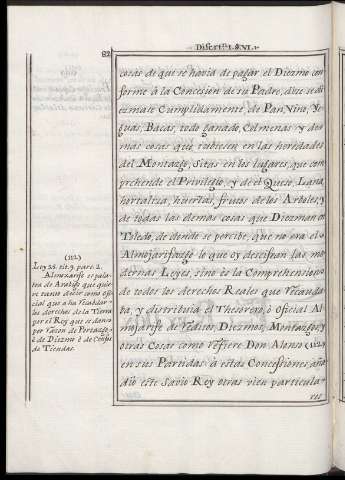 82
Disert.n LXVI.
cosas de que se havia de pagar el Diezmo con
forme à la Concesion de su Padre, dize se di
ezmase Cumplidamente, de Pan, Vino, Ye
guas, Bacas, todo ganado, Colmenas, y de
mas cosas que tubiesen en las heredades
del Montazgo, Sitas en los lugares, que com
prehende el Privilegio, y de el Queso, Lana
hortaliza, huertas, frutos de los Arboles, y
de todas las demas cosas que Diezman en
Toledo, de donde se percibe, que no era el
Almojarifazgo lo que oy descifran las mo
dernas Leyes, sino es la Comprehension
de todos los derechos Reales que Recauda
ba, y distribuia el Thesorero, ò oficial Al
mojarife de Redito, Diezmos, Montazgos, y
otras Cosas como refiere Don Alonso (112)
en sus Partidas. à estas Concessiones, aña
dio este Savio Rey otras vien particula-
res
(112)
Ley 25. tit. 9. part. 2.
Almoxarife es pala
bra de Arabigo que quie
re tanto decir como ofi
cial que a de Recabdar
los derechos de la Tierra
por el Rey que se dan
por razon de Portazgo,
ò de Diezmo ò de Censo
de Tiendas.